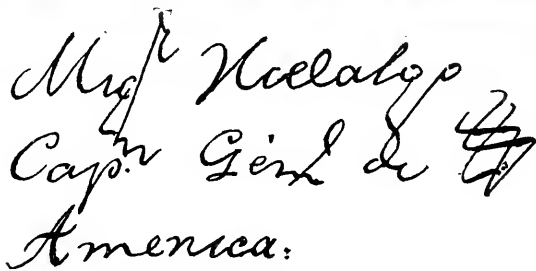 Migl Hidalgo
Capn Genl de
America.